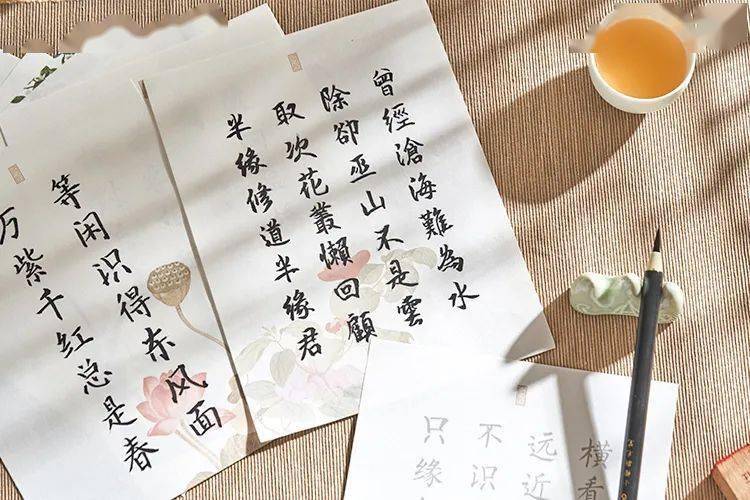 曾經滄海難為水
除卻巫山不是雲
取次花叢懶回顧
半缘修道半缘君
等闲识得东风面
万紫千红总是春
横看
远近
不识
只缘